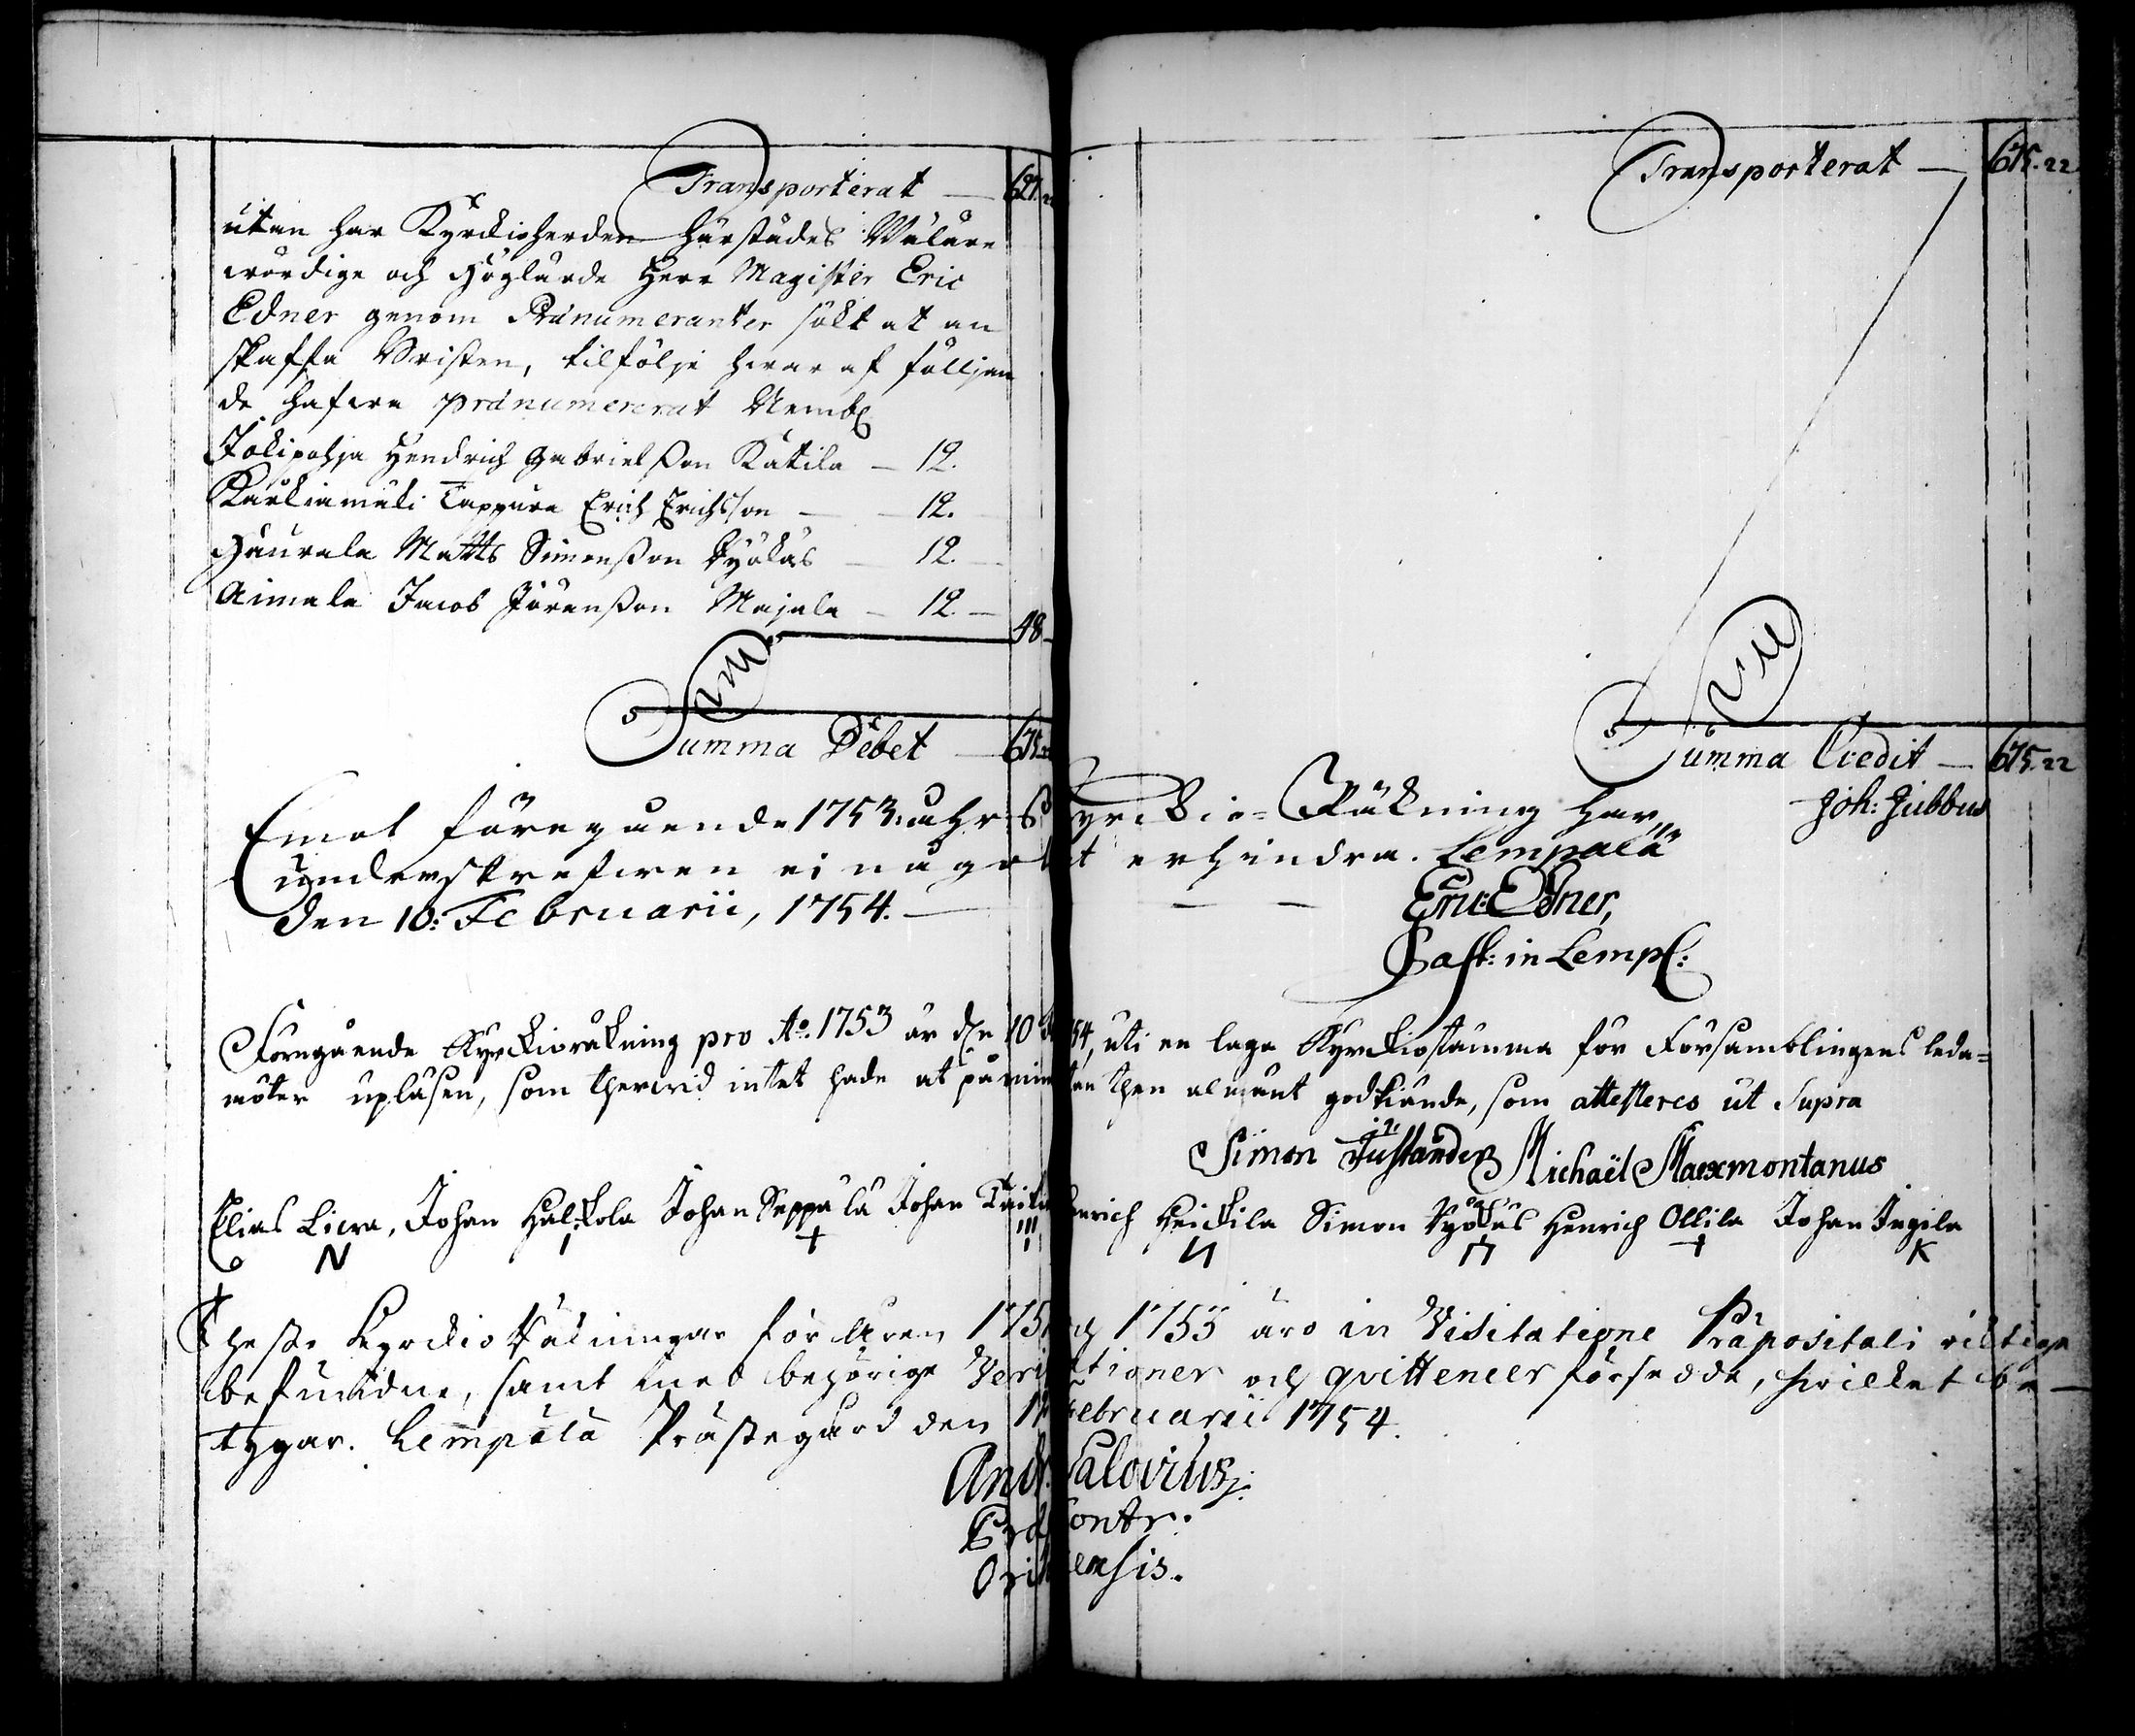 Transporterat — 627.
utan har Kyrckioherden härstädes Wälare
wördige och Höglärde Herr Magister Eric
Edner genom Pränumeranter sökt at an
skaffa Bristen, tilfölje hwar af följan
de hafwa pränumererat Nembl
Jokipohja Hendrich Gabrielsson Kattila — 12.
Kärkiamäki Tappura Erich Erichsson — 12.
Haurala Matts Simonsson Ryökäs — 12.
Aimala Jacob Jöransson Majala — 12. —
48 —
Summa Debet — 675.
Transporterat — 675. 22
Summa Credit — 675. 22
Joh: Jubbus
Emot föregående 1753: åhrs Kyrckio-Räkning har
underskrefwen ei något erhindra. Lempälä
den 10: Februarii, 1754. —
Eric: Edner,
Past: in Lemp:
Föregående Kyrckioräkning pro Ao. 1753 är den 10 54, uti en laga Kyrckiostämma för Församblingens leda=
möter upläsen, som therwid intet hade at påmin tan then almänt godkände, som attesteres ut Supra
Simon Justander Michaël Marxmontanus
Elias Liera, Johan Halkola Johan Seppälä Johan enrich Heickilä Simon Ryökäs Henrich Ollila Johan Ingila
N + III И + K
Thesse Kyrckio Räkningar för åren 175 och 1753 äro in Visitatione Præpositali richtige
befundne, samt med behörige Veri ationer och qvittencer försedde, hwilket be-
tygar. Lempälä Prästegård den 1 Februarii 1754.
And. Salovius.
Præp Contr.
Ori ensis.